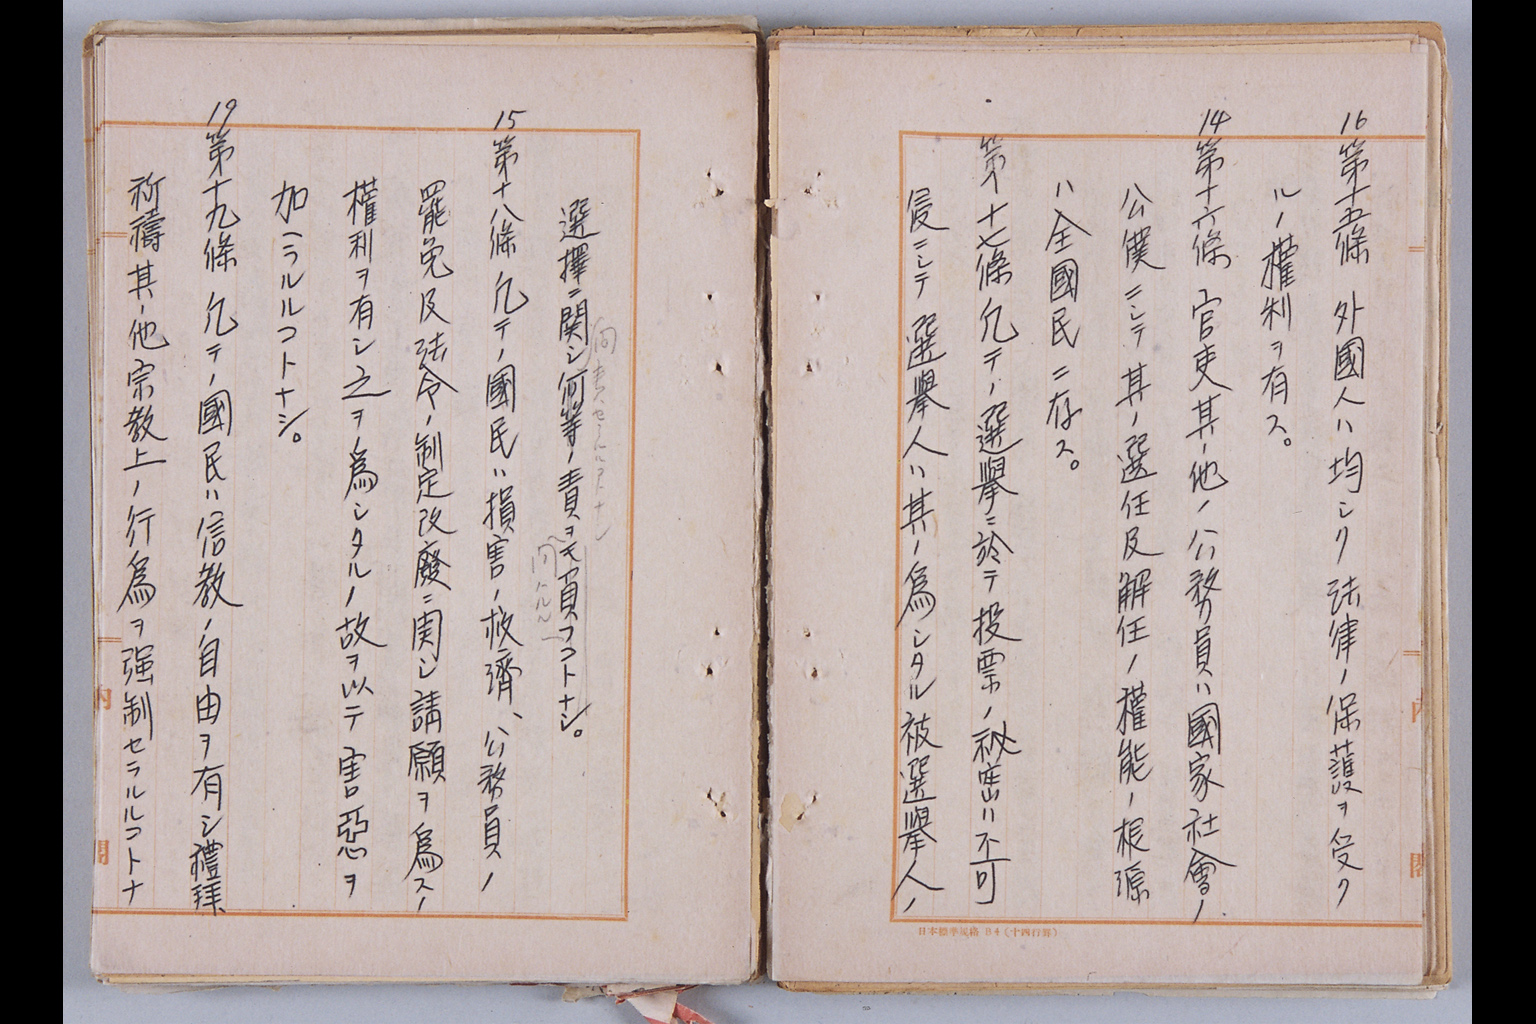 16 第十五條 外國人ハ均シク法律ノ保護ヲ受ク
ルノ權利ヲ有ス。
14 第十六條 官吏其ノ他ノ公務員ハ國家社會ノ
公僕ニシテ其ノ選任及解任ノ權能ノ根源
ハ全國民ニ存ス。
第十七條 凡テノ選擧ニ於テ投票ノ祕密ハ不可
侵ニシテ選擧人ハ其ノ爲シタル被選擧人ノ
日本標準規格B4(十四行罫)
選擇ニ関シ何等ノ責ヲモ負フコトナシ。
問責セラルルコトナシ
15 第十八條 凡テノ國民ハ損害ノ救濟、公務員ノ
罷免及法令ノ制定改廢ニ関シ請願ヲ爲スノ
權利ヲ有シ之ヲ爲シタルノ故ヲ以テ害惡ヲ
加ヘラルルコトナシ。
19 第十九條 凡テノ國民ハ信教ノ自由ヲ有シ禮拜、
祈禱其ノ他宗教上ノ行爲ヲ强制セラルルコトナ
内
閣
内
閣